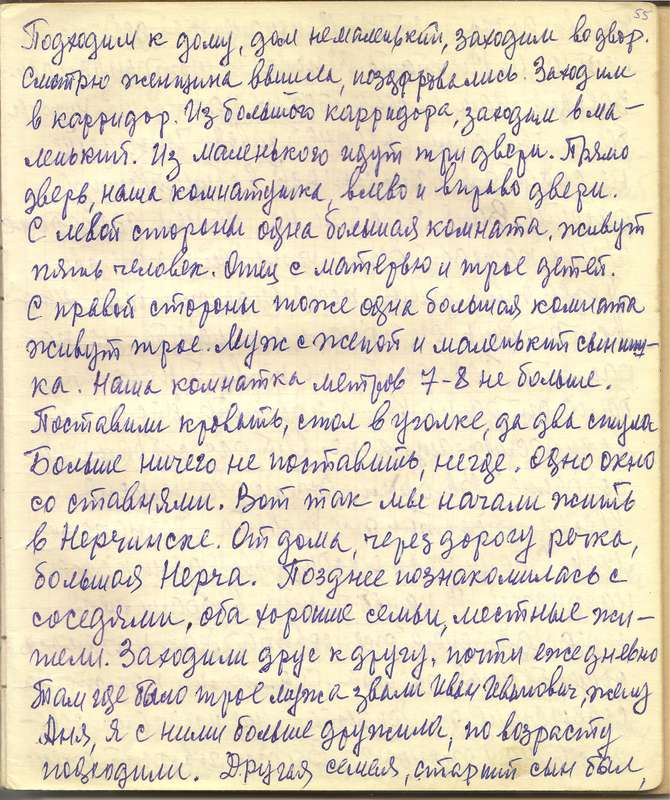 55
Подходим к дому, дом немаленький, заходим во двор.
Смотрю женщина вышла, поздоровались. Заходим
в карридор. Из большого карридора, заходим в ма-
ленький. Из маленького идут три двери. Прямо
дверь, наша комнатушка, влево и вправо двери.
С левой стороны одна большая комната, живут
пять человек. Отец с матерью и трое детей.
С правой стороны тоже одна большая комната
живут трое. Муж с женой и маленький сыниш-
ка. Наша комнатка метров 7-8 не больше.
Поставили кровать, стол в уголке, да два стула
Больше ничего не поставить, негде. Одно окно
со ставнями. Вот так мы начали жить
в Нерчинске. От дома, через дорогу речка,
большая Нерча. Позднее познакомилась с
соседями, оба хорошие семьи, местные жи-
тели. Заходили друг к другу, почти ежедневно
Там где было трое мужа звали Иван Иванович, жену
Аня, я с ними больше дружила, по возрасту
подходили. Другая семья, старший сын был,